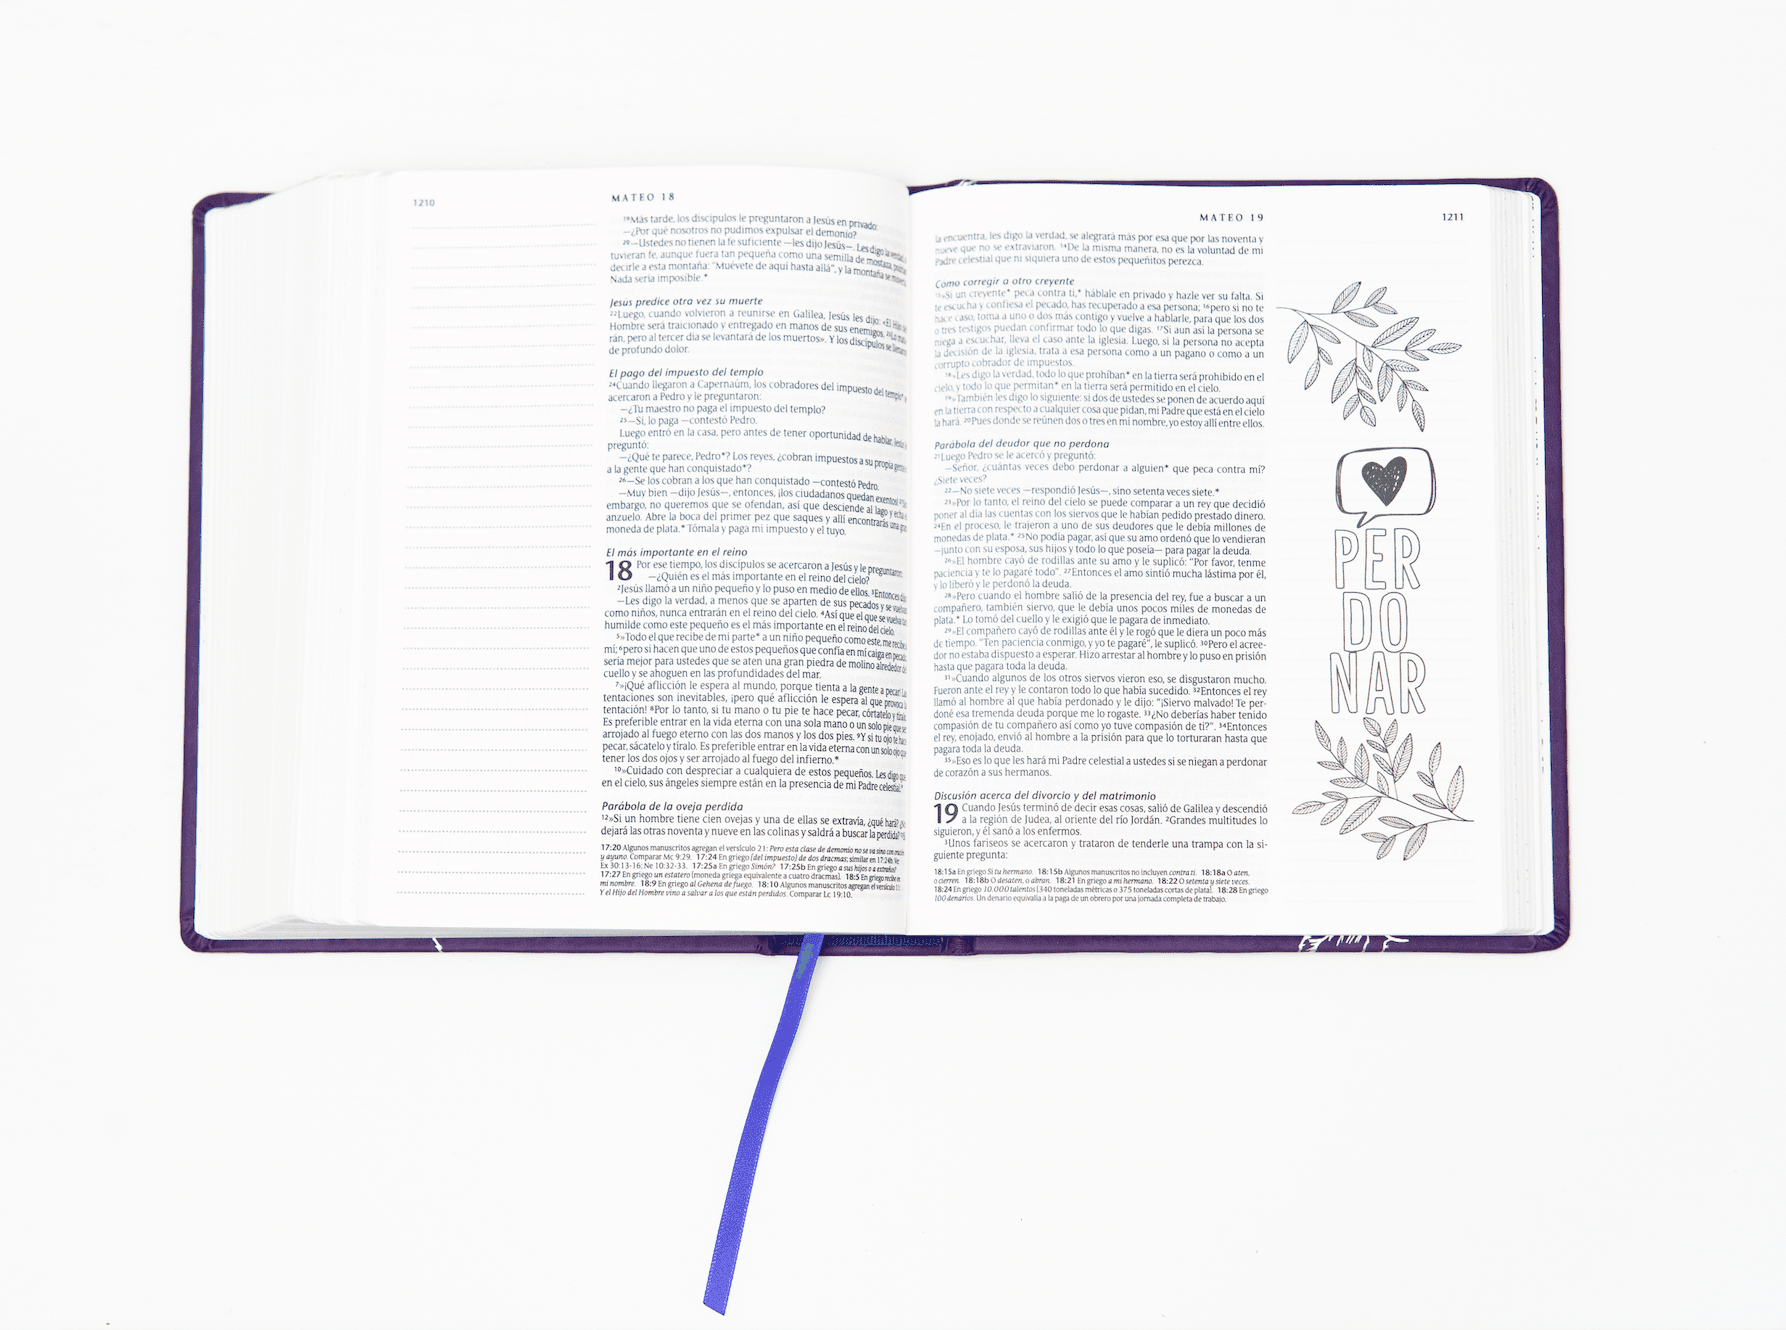 1210
MATEO 18
¹⁹Más tarde, los discípulos le preguntaron a Jesús en privado:
—¿Por qué nosotros no pudimos expulsar el demonio?
²⁰—Ustedes no tienen la fe suficiente —les dijo Jesús—. Les digo la verdad,
tuvieran fe, aunque fuera tan pequeña como una semilla de mostaza,
decirle a esta montaña: "Muévete de aquí hasta allá", y la montaña se
Nada sería imposible.*
Jesús predice otra vez su muerte
²²Luego, cuando volvieron a reunirse en Galilea, Jesús les dijo: «El
Hombre será traicionado y entregado en manos de sus enemigos.
rán, pero al tercer día se levantará de los muertos». Y los discípulos se
de profundo dolor.
El pago del impuesto del templo
²⁴Cuando llegaron a Capernaúm, los cobradores del impuesto del templo*
acercaron a Pedro y le preguntaron:
—¿Tu maestro no paga el impuesto del templo?
²⁵—Sí, lo paga —contestó Pedro.
Luego entró en la casa, pero antes de tener oportunidad de hablar,
preguntó:
—¿Qué te parece, Pedro*? Los reyes, ¿cobran impuestos a su propia
a la gente que han conquistado*?
²⁶—Se los cobran a los que han conquistado —contestó Pedro.
—Muy bien —dijo Jesús—, entonces, ¡los ciudadanos quedan exentos!
embargo, no queremos que se ofendan, así que desciende al lago y
anzuelo. Abre la boca del primer pez que saques y allí encontrarás una
moneda de plata.* Tómala y paga mi impuesto y el tuyo.
El más importante en el reino
18 Por ese tiempo, los discípulos se acercaron a Jesús y le preguntaron:
—¿Quién es el más importante en el reino del cielo?
²Jesús llamó a un niño pequeño y lo puso en medio de ellos. ³Entonces
—Les digo la verdad, a menos que se aparten de sus pecados y se
como niños, nunca entrarán en el reino del cielo. ⁴Así que el que se
humilde como este pequeño es el más importante en el reino del cielo.
⁵»Todo el que recibe de mi parte* a un niño pequeño como este, me recibe
mí; ⁶pero si hacen que uno de estos pequeños que confía en mí caiga en
sería mejor para ustedes que se aten una gran piedra de molino alrededor
cuello y se ahoguen en las profundidades del mar.
⁷»¡Qué aflicción le espera al mundo, porque tienta a la gente a pecar!
tentaciones son inevitables, ¡pero qué aflicción le espera al que provoca
tentación! ⁸Por lo tanto, si tu mano o tu pie te hace pecar, córtatelo y
Es preferible entrar en la vida eterna con una sola mano o un solo pie que
arrojado al fuego eterno con las dos manos y los dos pies. ⁹Y si tu ojo te
pecar, sácatelo y tíralo. Es preferible entrar en la vida eterna con un solo ojo
tener los dos ojos y ser arrojado al fuego del infierno.*
¹⁰»Cuidado con despreciar a cualquiera de estos pequeños. Les digo
en el cielo, sus ángeles siempre están en la presencia de mi Padre celestial.*
Parábola de la oveja perdida
¹²»Si un hombre tiene cien ovejas y una de ellas se extravía, ¿qué hará?
dejará las otras noventa y nueve en las colinas y saldrá a buscar la perdida?
17:20 Algunos manuscritos agregan el versículo 21: Pero esta clase de demonio no se va sino con
y ayuno. Comparar Mc 9:29. 17:24 En griego [del impuesto] de dos dracmas; similar en 17:24b.
Ex 30:13-16; Ne 10:32-33. 17:25a En griego Simón? 17:25b En griego a sus hijos o a extraños?
17:27 En griego un estatero [moneda griega equivalente a cuatro dracmas]. 18:5 En griego recibe en
mi nombre. 18:9 En griego al Gehena de fuego. 18:10 Algunos manuscritos agregan el versículo 11:
Y el Hijo del Hombre vino a salvar a los que están perdidos. Comparar Lc 19:10.
MATEO 19
1211
la encuentra, les digo la verdad, se alegrará más por esa que por las noventa y
nueve que no se extraviaron. ¹⁴De la misma manera, no es la voluntad de mi
Padre celestial que ni siquiera uno de estos pequeñitos perezca.
Cómo corregir a otro creyente
¹⁵»Si un creyente* peca contra ti,* háblale en privado y hazle ver su falta. Si
te escucha y confiesa el pecado, has recuperado a esa persona; ¹⁶pero si no te
hace caso, toma a uno o dos más contigo y vuelve a hablarle, para que los dos
o tres testigos puedan confirmar todo lo que digas. ¹⁷Si aun así la persona se
niega a escuchar, lleva el caso ante la iglesia. Luego, si la persona no acepta
la decisión de la iglesia, trata a esa persona como a un pagano o como a un
corrupto cobrador de impuestos.
¹⁸»Les digo la verdad, todo lo que prohíban* en la tierra será prohibido en el
cielo, y todo lo que permitan* en la tierra será permitido en el cielo.
¹⁹»También les digo lo siguiente: si dos de ustedes se ponen de acuerdo aquí
en la tierra con respecto a cualquier cosa que pidan, mi Padre que está en el cielo
la hará. ²⁰Pues donde se reúnen dos o tres en mi nombre, yo estoy allí entre ellos.
Parábola del deudor que no perdona
²¹Luego Pedro se le acercó y preguntó:
—Señor, ¿cuántas veces debo perdonar a alguien* que peca contra mí?
¿Siete veces?
²²—No siete veces —respondió Jesús—, sino setenta veces siete.*
²³»Por lo tanto, el reino del cielo se puede comparar a un rey que decidió
poner al día las cuentas con los siervos que le habían pedido prestado dinero.
²⁴En el proceso, le trajeron a uno de sus deudores que le debía millones de
monedas de plata.* ²⁵No podía pagar, así que su amo ordenó que lo vendieran
—junto con su esposa, sus hijos y todo lo que poseía— para pagar la deuda.
²⁶»El hombre cayó de rodillas ante su amo y le suplicó: "Por favor, tenme
paciencia y te lo pagaré todo". ²⁷Entonces el amo sintió mucha lástima por él,
y lo liberó y le perdonó la deuda.
²⁸»Pero cuando el hombre salió de la presencia del rey, fue a buscar a un
compañero, también siervo, que le debía unos pocos miles de monedas de
plata.* Lo tomó del cuello y le exigió que le pagara de inmediato.
²⁹»El compañero cayó de rodillas ante él y le rogó que le diera un poco más
de tiempo. "Ten paciencia conmigo, y yo te pagaré", le suplicó. ³⁰Pero el acree-
dor no estaba dispuesto a esperar. Hizo arrestar al hombre y lo puso en prisión
hasta que pagara toda la deuda.
³¹»Cuando algunos de los otros siervos vieron eso, se disgustaron mucho.
Fueron ante el rey y le contaron todo lo que había sucedido. ³²Entonces el rey
llamó al hombre al que había perdonado y le dijo: "¡Siervo malvado! Te per-
doné esa tremenda deuda porque me lo rogaste. ³³¿No deberías haber tenido
compasión de tu compañero así como yo tuve compasión de ti?". ³⁴Entonces
el rey, enojado, envió al hombre a la prisión para que lo torturaran hasta que
pagara toda la deuda.
³⁵»Eso es lo que les hará mi Padre celestial a ustedes si se niegan a perdonar
de corazón a sus hermanos.
Discusión acerca del divorcio y del matrimonio
19 Cuando Jesús terminó de decir esas cosas, salió de Galilea y descendió
a la región de Judea, al oriente del río Jordán. ²Grandes multitudes lo
siguieron, y él sanó a los enfermos.
³Unos fariseos se acercaron y trataron de tenderle una trampa con la si-
guiente pregunta:
18:15a En griego Si tu hermano. 18:15b Algunos manuscritos no incluyen contra ti. 18:18a O aten,
o cierren. 18:18b O desaten, o abran. 18:21 En griego a mi hermano. 18:22 O setenta y siete veces.
18:24 En griego 10.000 talentos [340 toneladas métricas o 375 toneladas cortas de plata]. 18:28 En griego
100 denarios. Un denario equivalía a la paga de un obrero por una jornada completa de trabajo.
PER
DO
NAR